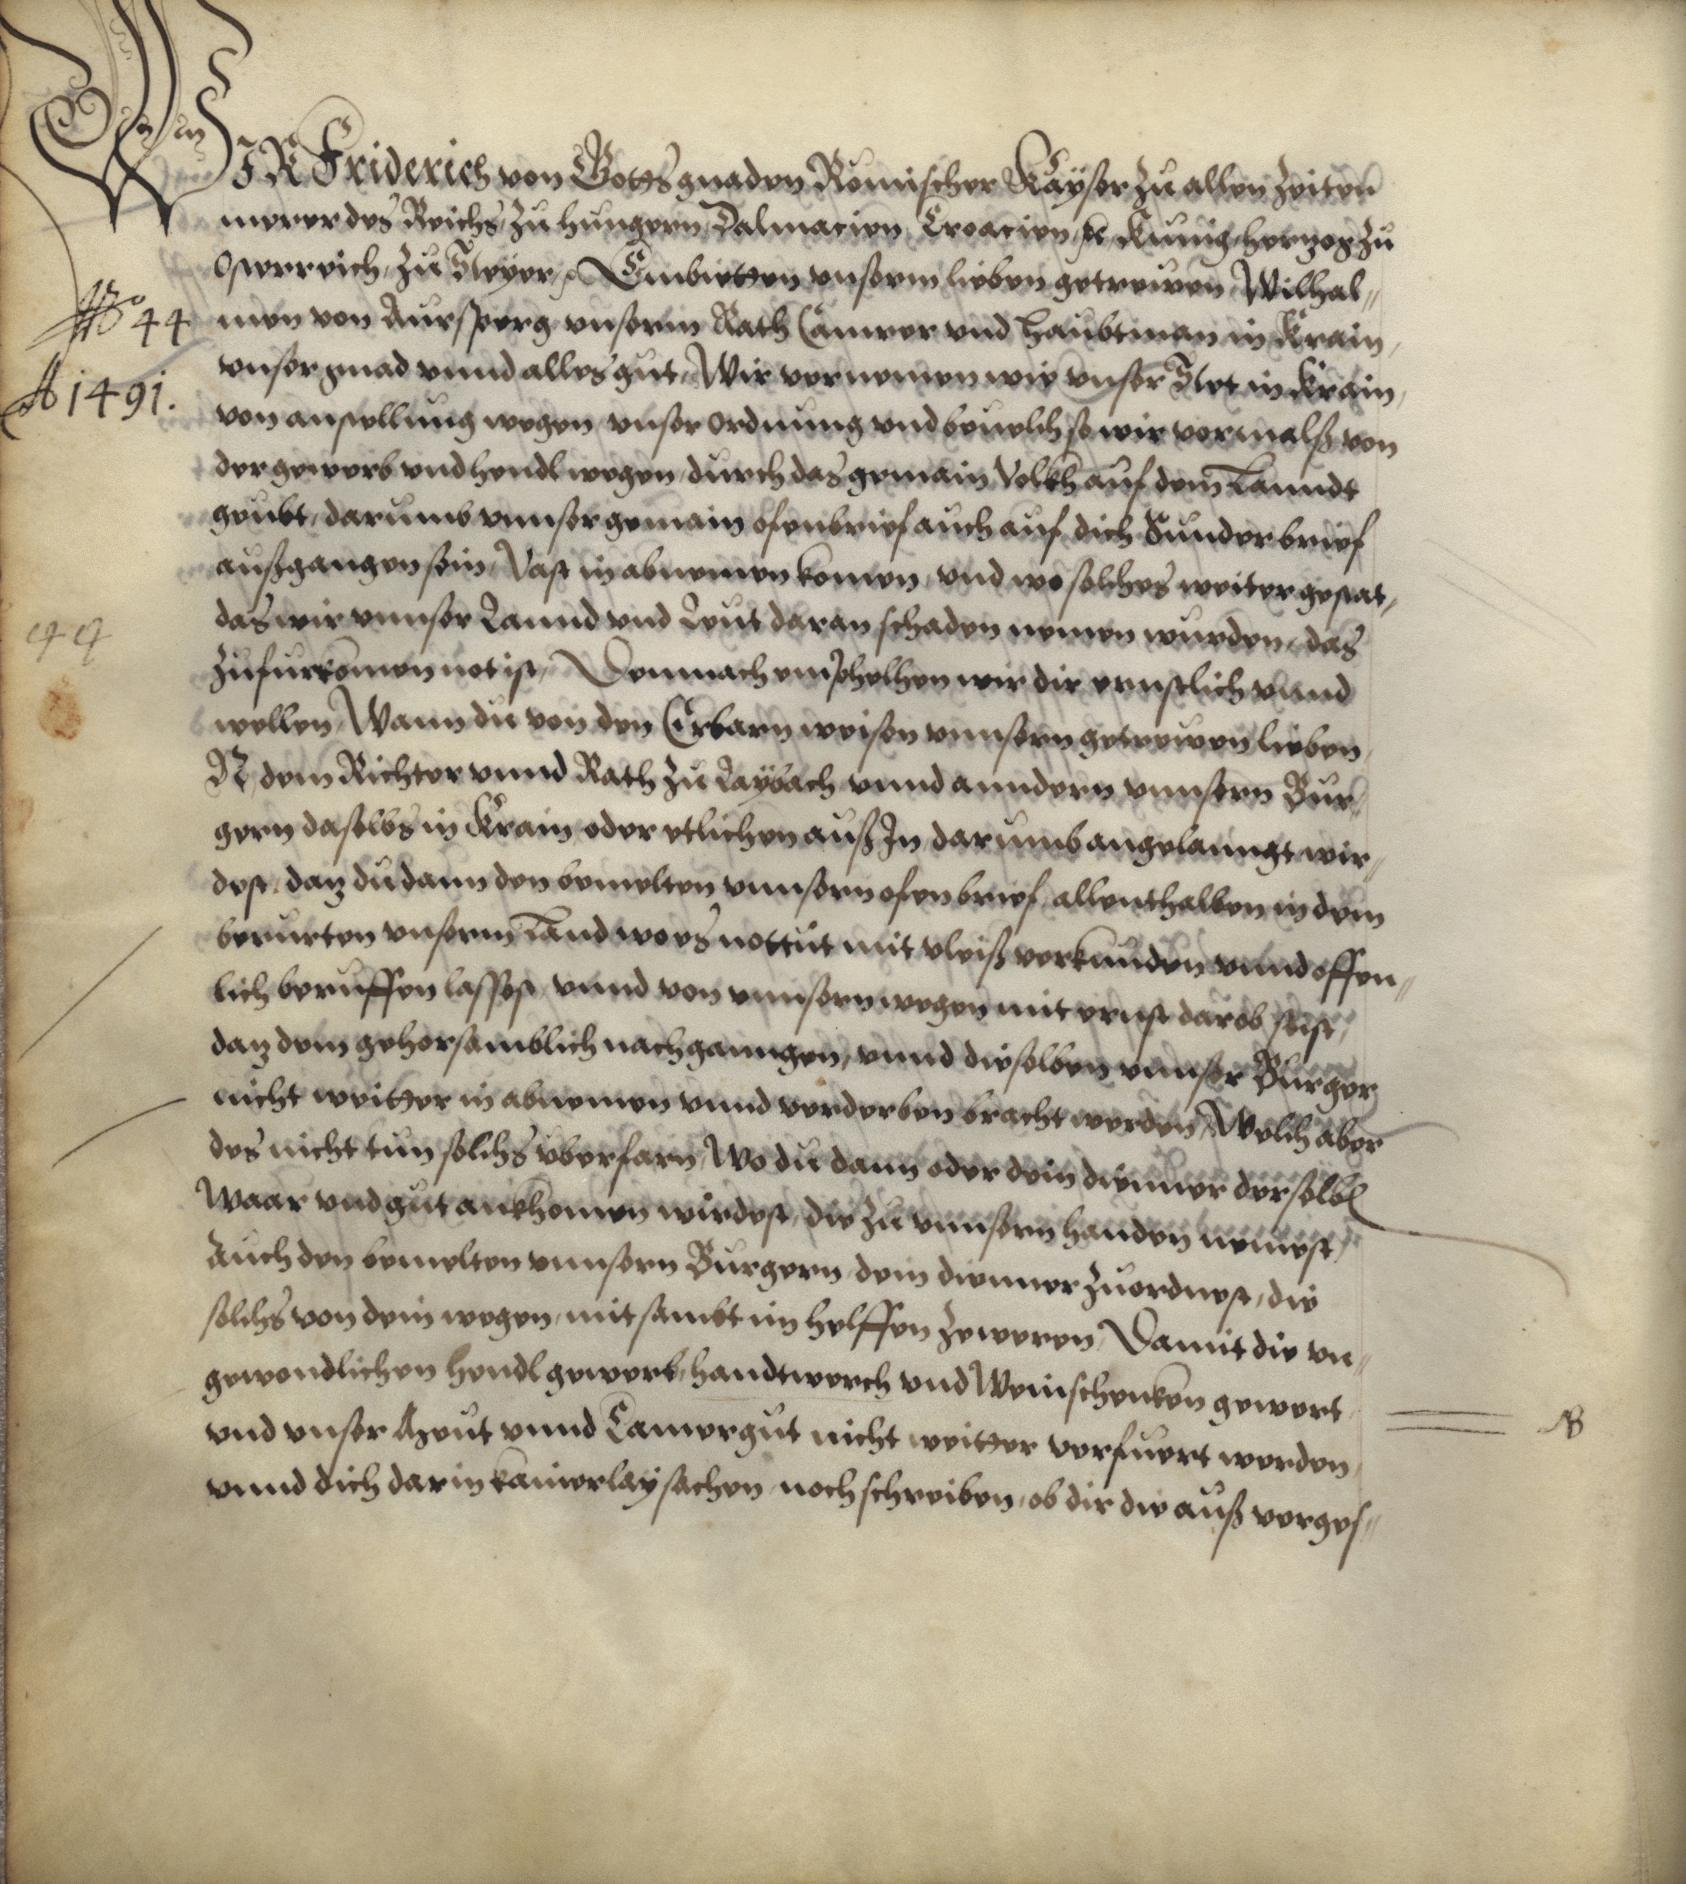 WIR Friderich von Gottsgnaden Romischer Kayser zu allen Zeiten
merer des Reichs zu hungern, Dalmacien, Croacien, ꝛc Kunig, hertzog zu
Osterreich, zu Steyer, ꝛc Embietten vnserm lieben getrewen, Wilhal=
N.º 44
men von Aursperg vnserm Rath Camrer vnd haubtman in Krain,
vnser gnad vnnd alles gut, Wir vernemen wie vnser Stet in Krain,
A 1491.
von anstellung wegen vnser ordnung vnd beuelch so wir vormalß von
der gewerb vnd hendl wegen, durch das gemain Volkh auf dem Lanndt
geubt, darumb vnnser gemain ofenbrief auch auf dich Sunder brief
außgangen sein, Vast in abnemen komen, vnd wo solches weiter gestat,
das wir vnnser Lannd vnd Leut daran schaden nemen wurden, das
44
zufurkomen not ist, Demnach emphelhen wir dir ernstlich vnnd
wellen, Wann du von den Erbarn weisen vnnsern getrewen lieben,
N, dem Richter vnnd Rath zu Laybach vnnd anndern vnnsern Bur=
gern daselbs in Krain, oder etlichen auß In darumb angelanngt wir=
dest, daz du dann den bemelten vnnsern ofenbrief, allenthalben in dem
berurten vnserm Land wo es nottut mit vleiß verkunden vnnd offen=
lich beruffen lassest, vnnd von vnnsern wegen mit ernst darob seist,
daz dem gehorsamblich nachganngen, vnnd dieselben vnnser Burger
nicht weitter in abnemen vnnd verderben bracht werden, Welch aber
des nicht tun solchs vberfarn, Wo du dann oder dein dienner derselbn
Waar vnd gut ankhomen wirdest, die zu vnnsern handen nemest,
Auch den bemelten vnnsern Burgern, dein dienner zuordnest, die
solchs von dein wegen, mit sambt im helffen zeweren, Damit die vn=
gewondlichen hendl gewerb, handtwerch vnd Weinschenken gewert
vnd vnser Leut vnnd Camergut nicht weitter verfuert werden,
NB
vnnd dich darin kainerlay sachen, noch schreiben, ob dir die auß verges=